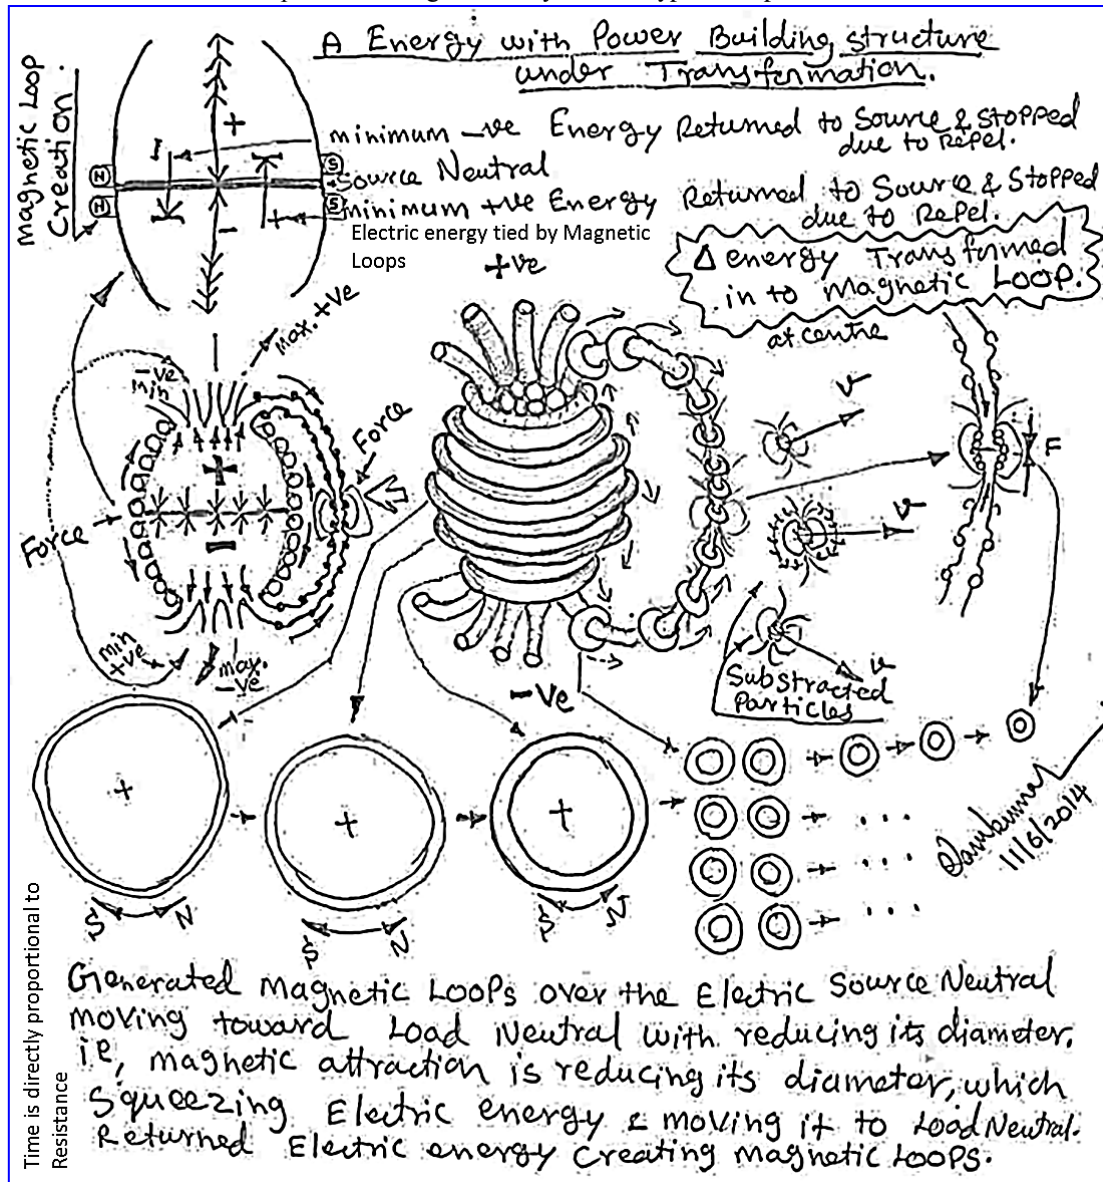 A Energy with Power Building structure
under Transformation.
Magnetic Loop
Creation.
+
minimum -ve Energy Returned to Source & Stopped
due to Repel.
N
S
Source Neutral
N
S
minimum +ve Energy Returned to Source & Stopped
due to Repel.
Electric energy tied by Magnetic
Loops
Δ energy Transformed
in to Magnetic Loop.
at centre
+ve
max. +ve
-ve
min
Force
+
-
Force
min
+ve
max.
-ve
-ve
v
v
v
F
Substracted
Particles
+
+
+
S N
S N
S N
...
...
...
11/6/2014
Generated Magnetic Loops over the Electric Source Neutral
moving toward Load Neutral with reducing its diameter.
ie, magnetic attraction is reducing its diameter, which
Squeezing Electric energy & moving it to Load Neutral.
Returned Electric energy creating Magnetic Loops.
Time is directly proportional to
Resistance